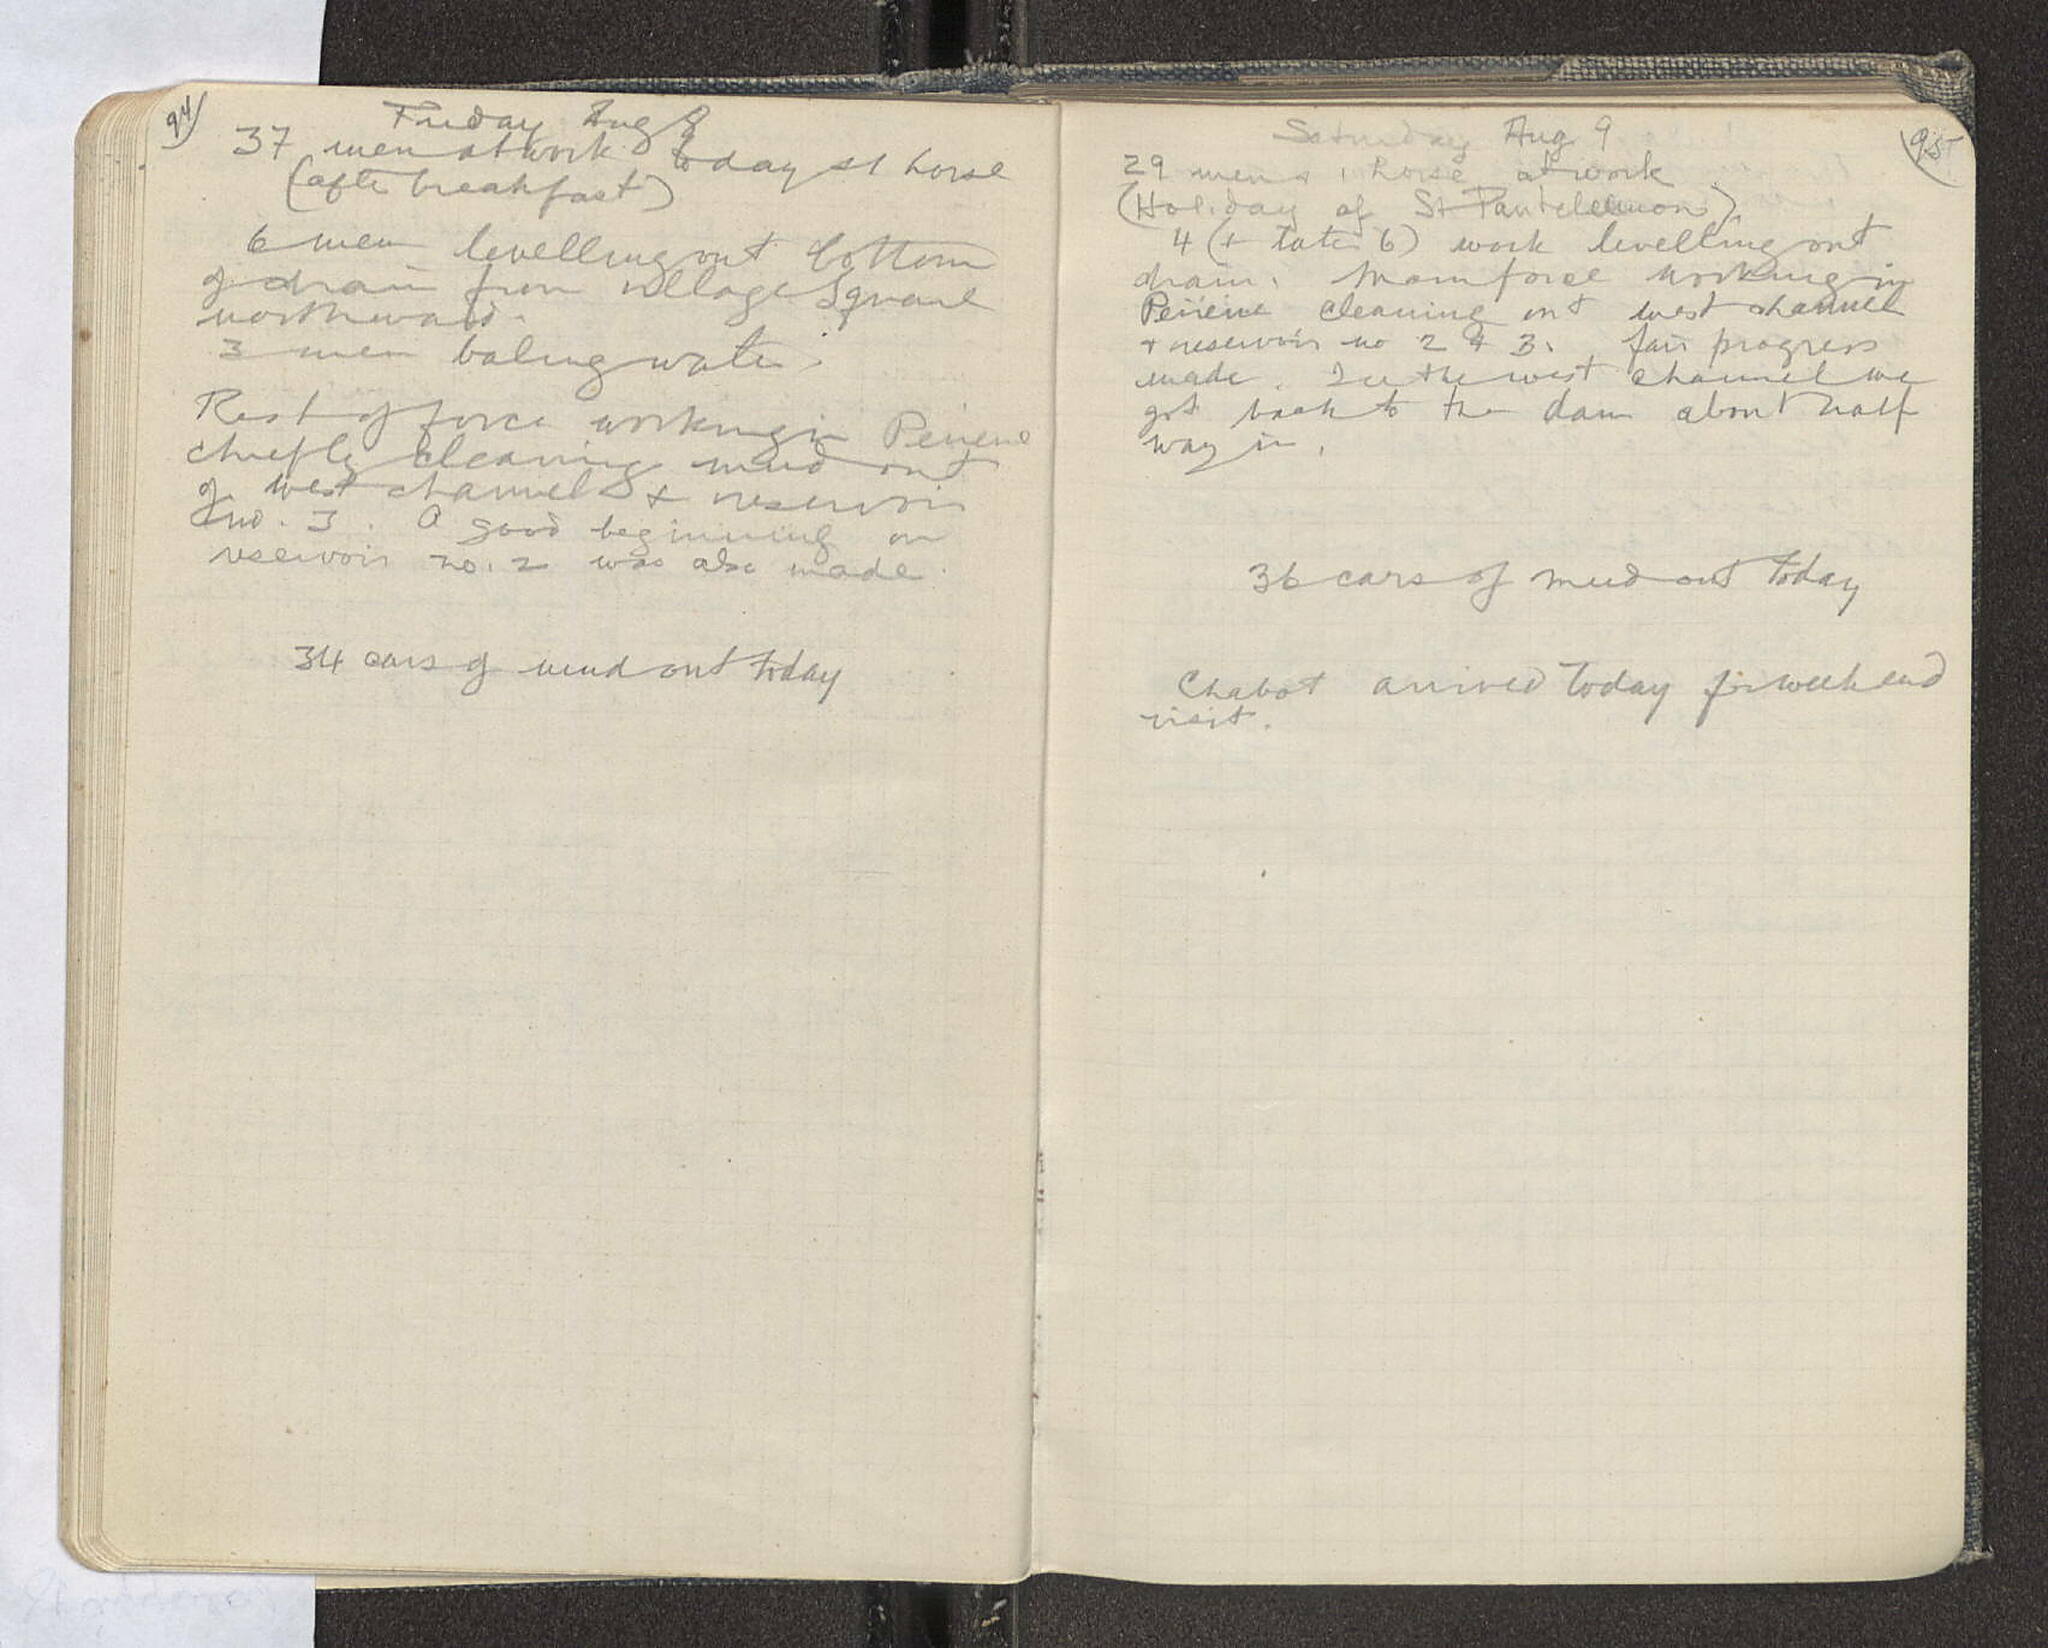 94
Friday Aug 8
37 men at work today & 1 horse
(after breakfast)
6 men levelling out bottom
of drain from village Square
northward.
3 men baling water.
Rest of force working in Peirene
chiefly cleaning mud out
of west channel & reservoir
no. 3. A good beginning on
reservoir no. 2 was also made.
34 cars of mud out today
95
Saturday Aug 9
29 men & 1 horse at work
(Holiday of St Panteleemon)
4 (+ later 6) work levelling out
drain. Main force working in
Peirene cleaning out west channel
& reservoir no 2 & 3. fair progress
made. In the west channel we
got back to the dam about half
way in.
36 cars of mud out today
Chabot arrived today for week end
visit.